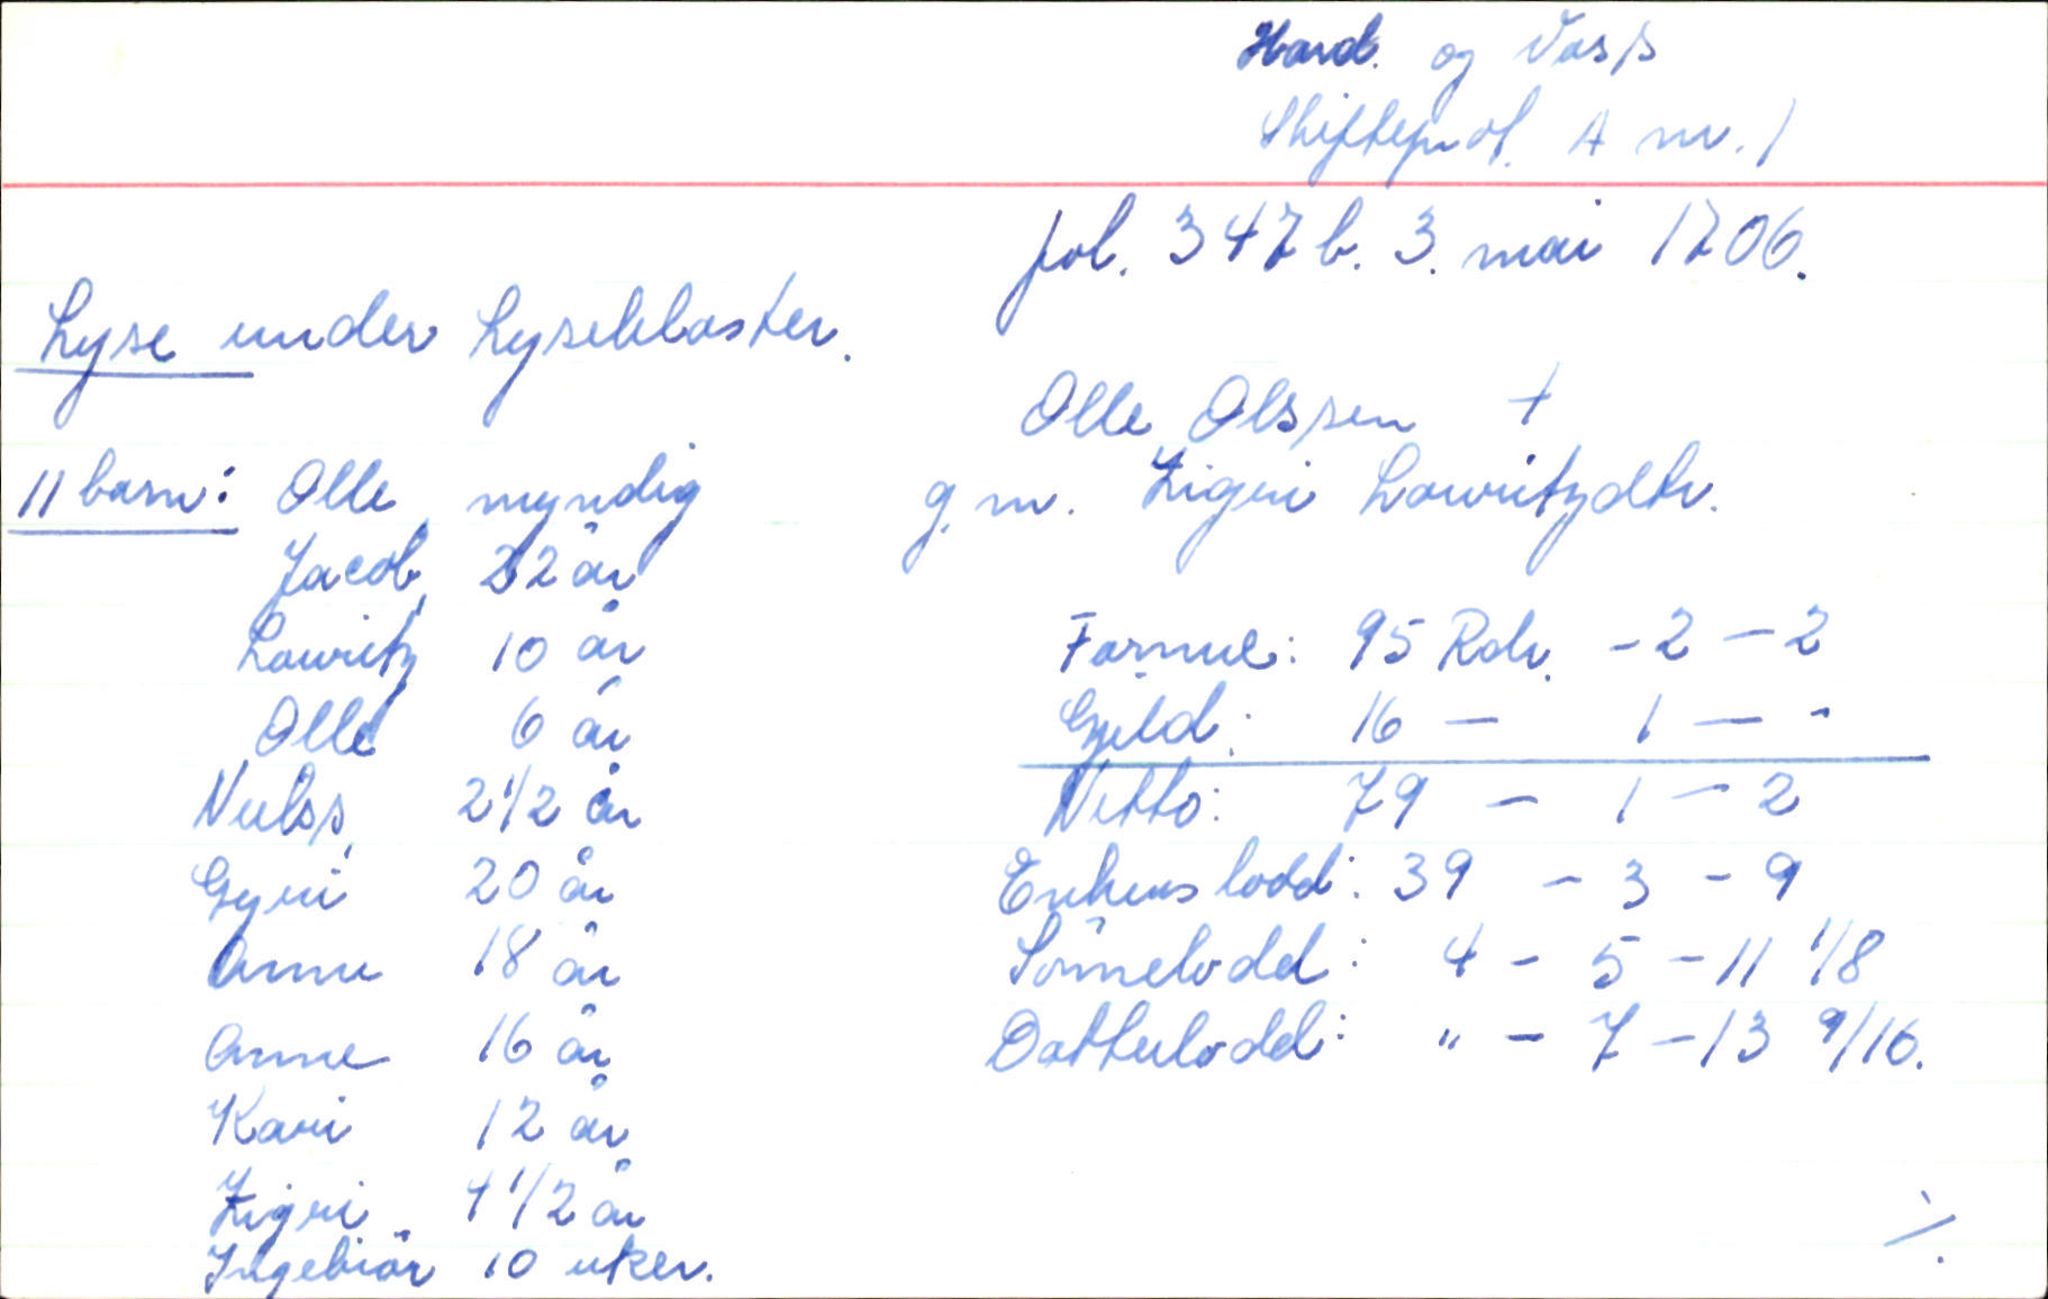 Hard. og Vos/s
Skifteprot. A nr. 1
fol. 347 b. 3. mai 1706.
Lyse under Lysekloster.
Olle Ols/sen +
g.m. Zigri Lawritzdtr.
11 barn: Olle myndig
Jacob 22 år
Lawritz 10 år
Olle 6 år
Neels/s 2 1/2 år
Gyri 20 år
Anne 18 år
Anne 16 år
Kari 12 år
Zigri 4 1/2 år
Ingebiör 10 uker.
Formue: 95 Rdr. - 2 - 2
Gjeld: 16 - 1 - -
Netto: 79 - 1 - 2
Enkens lodd: 39 - 3 - 9
Sönnelodd: 4 - 5 - 11 1/8
Datterlodd: " - 7 - 13 9/16.
./.